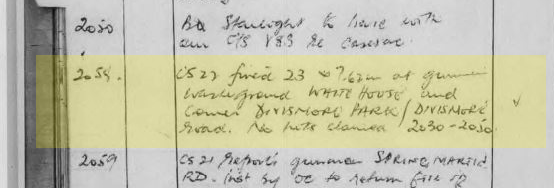 2050 BQ Starlight to liase with
our C/S V83 re casevac.
2058. CS 23 fired 23 x 7.62m at gunman
Wasteground WHITE HOUSE and
Corner DIVISMORE PARK / DIVISMORE
Road. No hits claimed 2030 - 2050.
2059 CS 21 reports gunman SPRINGMARTIN
RD. Inst by OC to return fire if